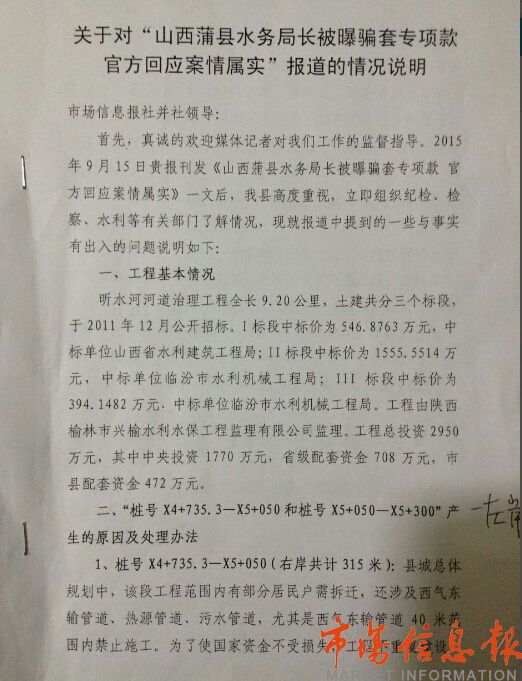 关于对“山西蒲县水务局长被曝骗套专项款
官方回应案情属实”报道的情况说明
市场信息报社并社领导：
首先，真诚的欢迎媒体记者对我们工作的监督指导。2015
年9月15日贵报刊发《山西蒲县水务局长被曝骗套专项款 官
方回应案情属实》一文后，我县高度重视，立即组织纪检、检
察、水利等有关部门了解情况，现就报道中提到的一些与事实
有出入的问题说明如下：
一、工程基本情况
昕水河河道治理工程全长9.20公里，土建共分三个标段，
于2011年12月公开招标。I标段中标价为546.8763万元，中
标单位山西省水利建筑工程局；II标段中标价为1555.5514万
元，中标单位临汾市水利机械工程局；III 标段中标价为
394.1482万元，中标单位临汾市水利机械工程局。工程由陕西
榆林市兴榆水利水保工程监理有限公司监理。工程总投资2950
万元，其中中央投资1770万元，省级配套资金708万元，市
县配套资金472万元。
二、“桩号X4+735.3—X5+050和桩号X5+050—X5+300”产
生的原因及处理办法
左岸
1、桩号X4+735.3—X5+050（右岸共计315米）：县城总体
规划中，该段工程范围内有部分居民户需拆迁，还涉及西气东
输管道、热源管道、污水管道，尤其是西气东输管道40米范
围内禁止施工。为了使国家资金不受损失，工程不重复建设，
市场信息报
MARKET INFORMATION